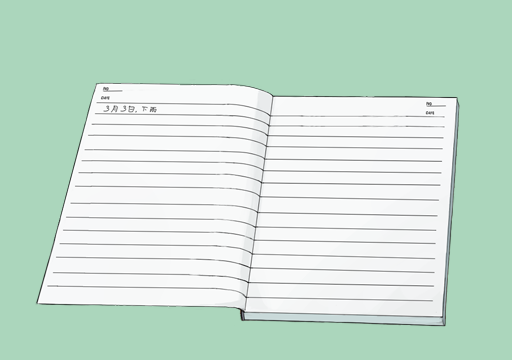 No.
DATE
3月3日，下雨
No.
DATE